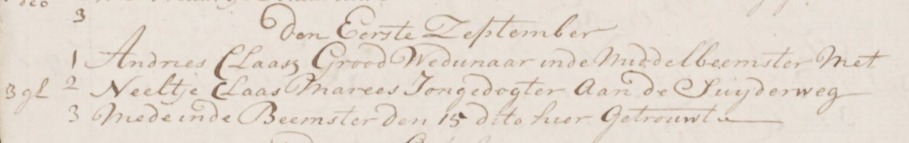 3
den Eerste Zeptember
1 Andries Claasz Grood Wedunaar inde Middelbeemster Met
3 gl 2 Neeltje Claas Marees Jongedogter Aan de Suyderweg
3 Mede inde Beemster den 15 dito hier Getrouwt